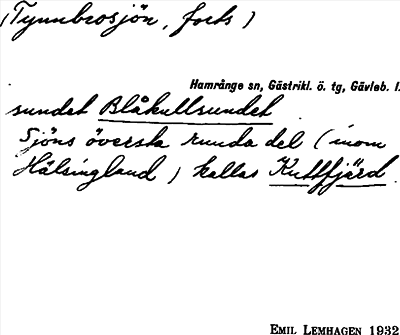 (Tynnbrosjön, forts)
Hamrånge sn, Gästrikl. ö. tg, Gävleb. l.
sundet Blåkullsundet
Sjöns översta runda del (inom
Hälsingland) kallas Kuttfjärd.
EMIL LEMHAGEN 1932